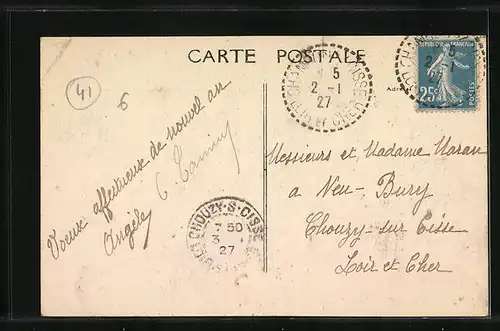 CARTE POSTALE
41
6
Voeux affectueux de nouvel an
Angèle
5
2 - 1
27
LOIR ET CHER
RÉPUBLIQUE FRANÇAISE
25c
POSTES
5
2 - 1
27
Adre
CHOUZY-S-CISSE
7 50
3
27
Messieurs et Madame
a Neu-Bury
Chouzy-sur Cisse
Loir et Cher